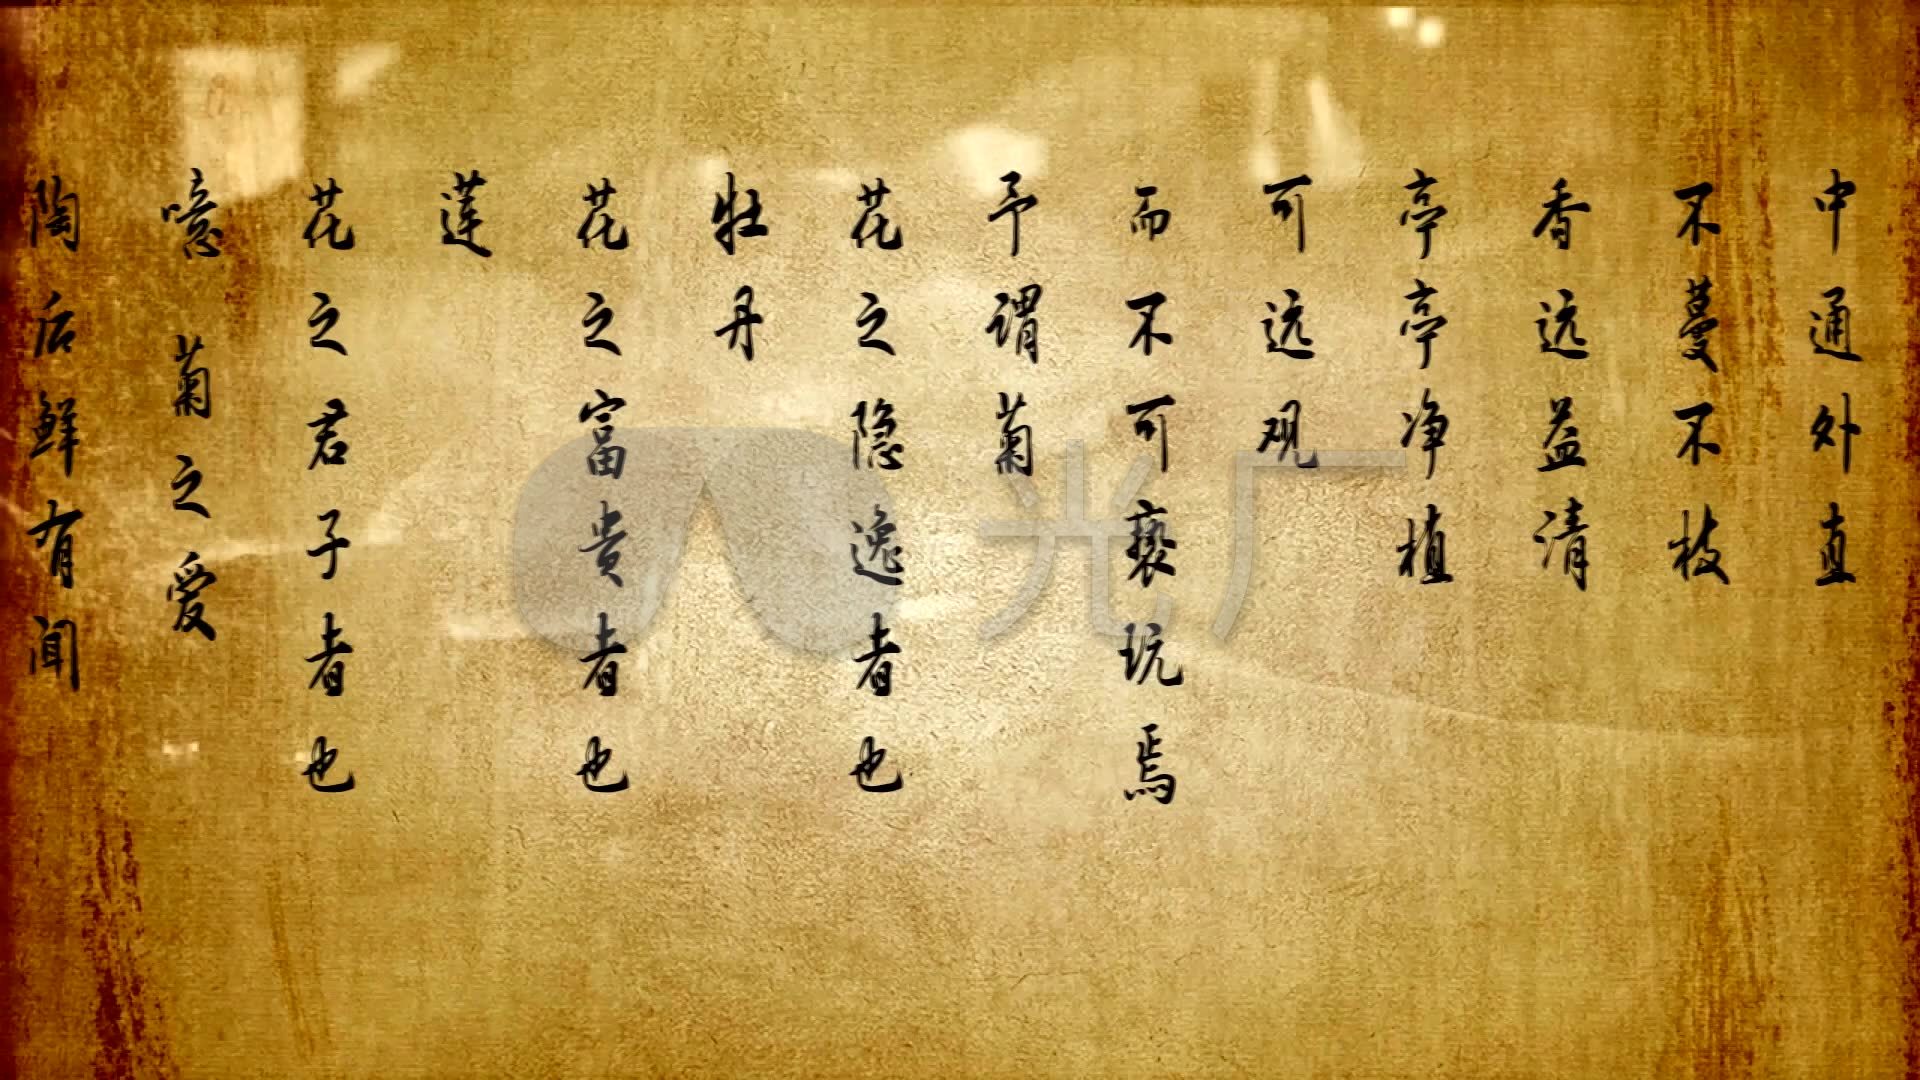 中通外直
不蔓不枝
香远益清
亭亭净植
可远观
而不可亵玩焉
予谓菊
花之隐逸者也
牡丹
花之富贵者也
莲
花之君子者也
噫 菊之爱
陶后鲜有闻
光厂